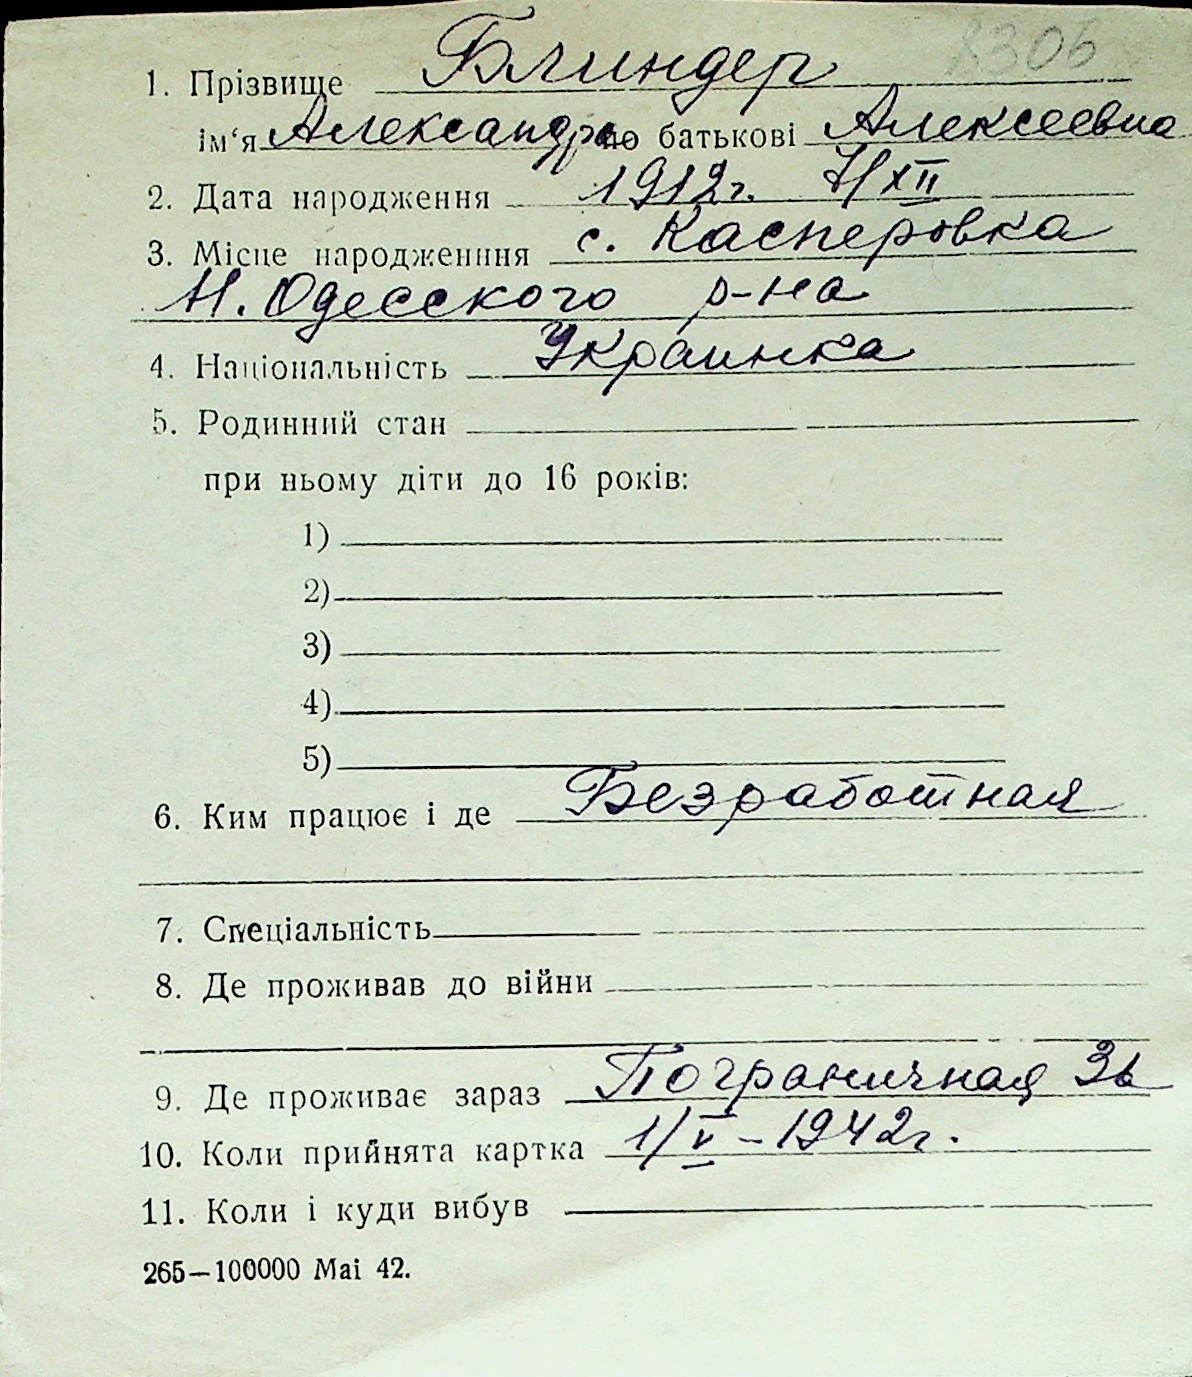 8306
1. Прізвище Блиндер
ім'я Александра по батькові Алексеевна
2. Дата народження 1912г. 7/XII
3. Місце народженння с. Касперовка
Н. Одесского р-на
4. Національність Украинка
5. Родинний стан
при ньому діти до 16 років:
1)
2)
3)
4)
5)
6. Ким працює і де Безработная
7. Спеціальність
8. Де проживав до війни
9. Де проживає зараз Пограничная
10. Коли прийнята картка 1/V – 1942г.
11. Коли і куди вибув
265—100000 Mai 42.